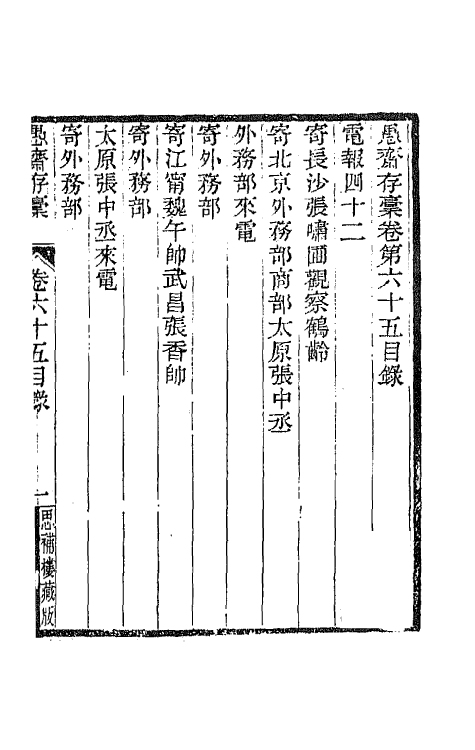 愚齋存稾卷第六十五目錄
電報四十二
寄長沙張嘯圃觀察鶴齡
寄北京外務部商部太原張中丞
外務部來電
寄外務部
寄江甯魏午帥武昌張香帥
寄外務部
太原張中丞來電
寄外務部
愚齋存稾 卷六十五目錄 一 思補樓藏版